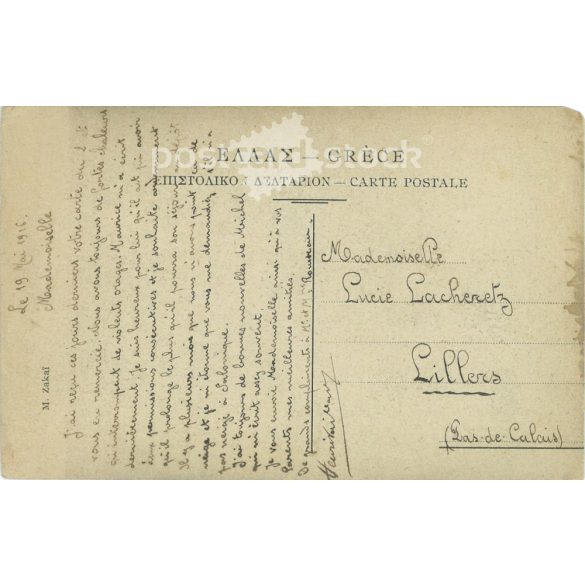 ΕΛΛΑΣ — GRÈCE
ΕΠΙΣΤΟΛΙΚΟΝ ΔΕΛΤΑΡΙΟΝ — CARTE POSTALE
M. Zakaï
Le 19 Mai 1916.
Mademoiselle
J'ai reçu ces jours derniers votre carte du 2 et
vous en remercie. Nous avons toujours de fortes chaleurs
qu'interrompent de violents orages. Maurice m'a écrit
dernièrement je suis heureux pour lui qu'il ait pu avoir
deux permissions consécutives et je souhaite
qu'il prolonge le plus qu'il pourra son séjour
Il y a plusieurs mois que nous n'avons point de
neige et je m'étonne que vous me demandiez s'il a
pas neigé à Salonique.
J'ai toujours de bonnes nouvelles de Michel
qui m'écrit assez souvent.
Je vous envoie Mademoiselle ainsi qu'à vos
Parents mes meilleures amitiés.
De grands compliments à Mr et Mme Rousseau.
Mademoiselle
Lucie Lacheretz
Lillers
(Pas-de-Calais)